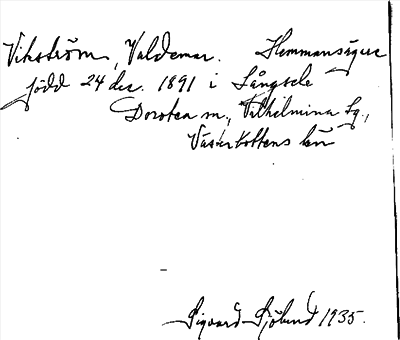 Vikström, Valdemar. Hemmansägare
född 24 dec. 1891 i Långsele
Dorotea sn., Vilhelmina lg.,
Västerbottens län
Sigvard Sjölund 1935.